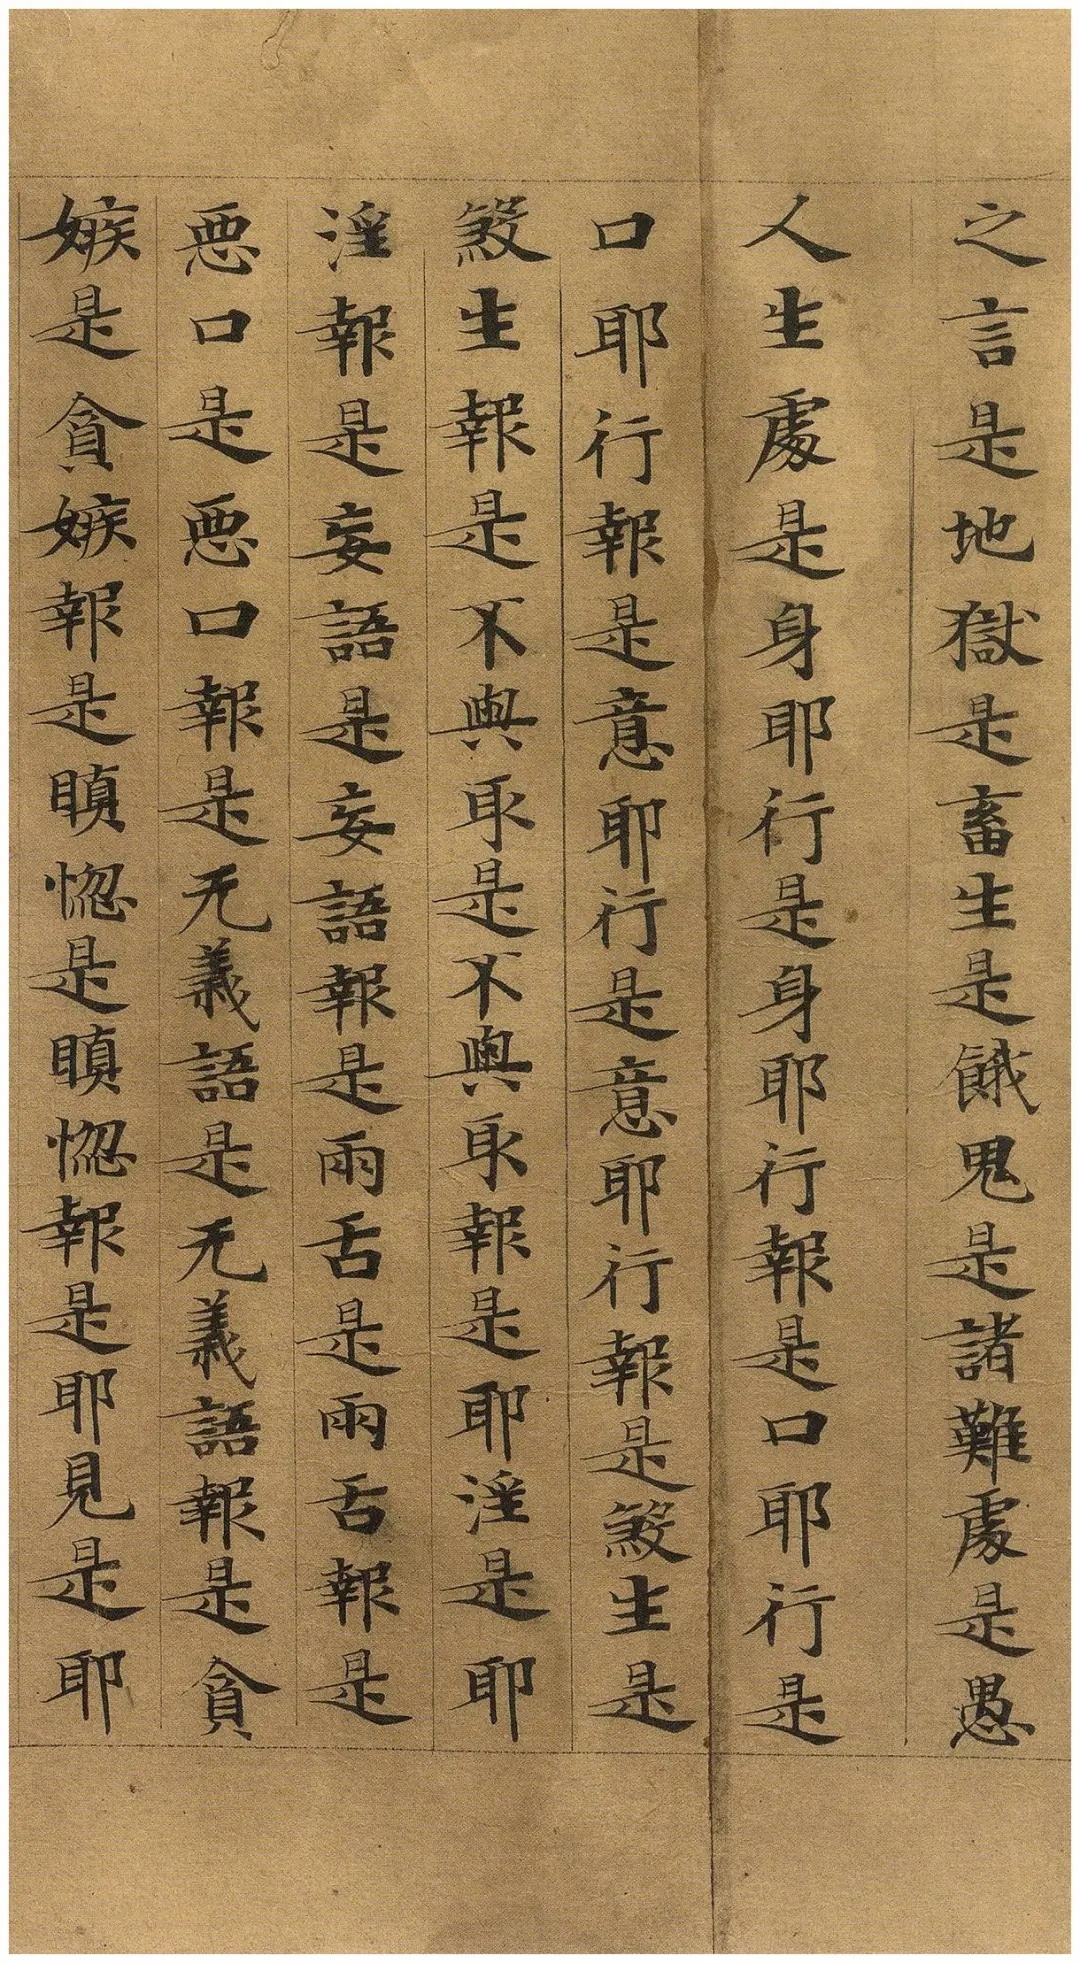 之言是地獄是畜生是餓鬼是諸難處是愚
人生處是身耶行是身耶行報是口耶行是
口耶行報是意耶行是意耶行報是煞生是
煞生報是不與取是不與取報是耶淫是耶
淫報是妄語是妄語報是兩舌是兩舌報是
惡口是惡口報是无義語是无義語報是貪
嫉是貪嫉報是瞋惚是瞋惚報是耶見是耶